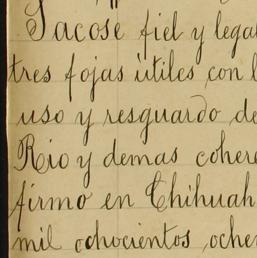 Sacose fiel y legal
tres fojas útiles con l
uso y resguardo de
Rio y demas cohere
firmo en Chihuah
mil ochocientos oche